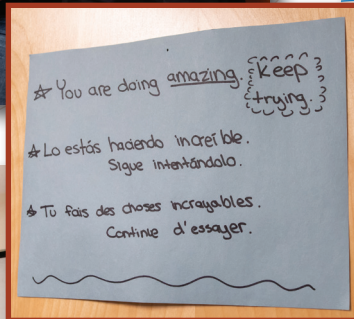 You are doing amazing. Keep
trying.
Lo estás haciendo increíble.
Sigue intentándolo.
Tu fais des choses incrayables.
Continue d'essayer.